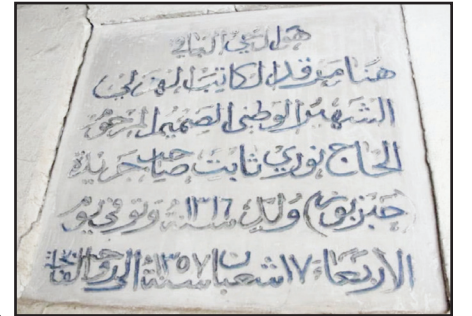 هو الحي الباقي
هنا مرقد الكاتب الهزلي
الشهير الوطني الصميم المرحوم
الحاج نوري ثابت صاحب جريدة
حبزبوز ولد سنة ١٣١٦ وتوفي يوم
الاربعاء ١٧ شعبان سنة ١٣٥٧ الى روحه الفاتحة